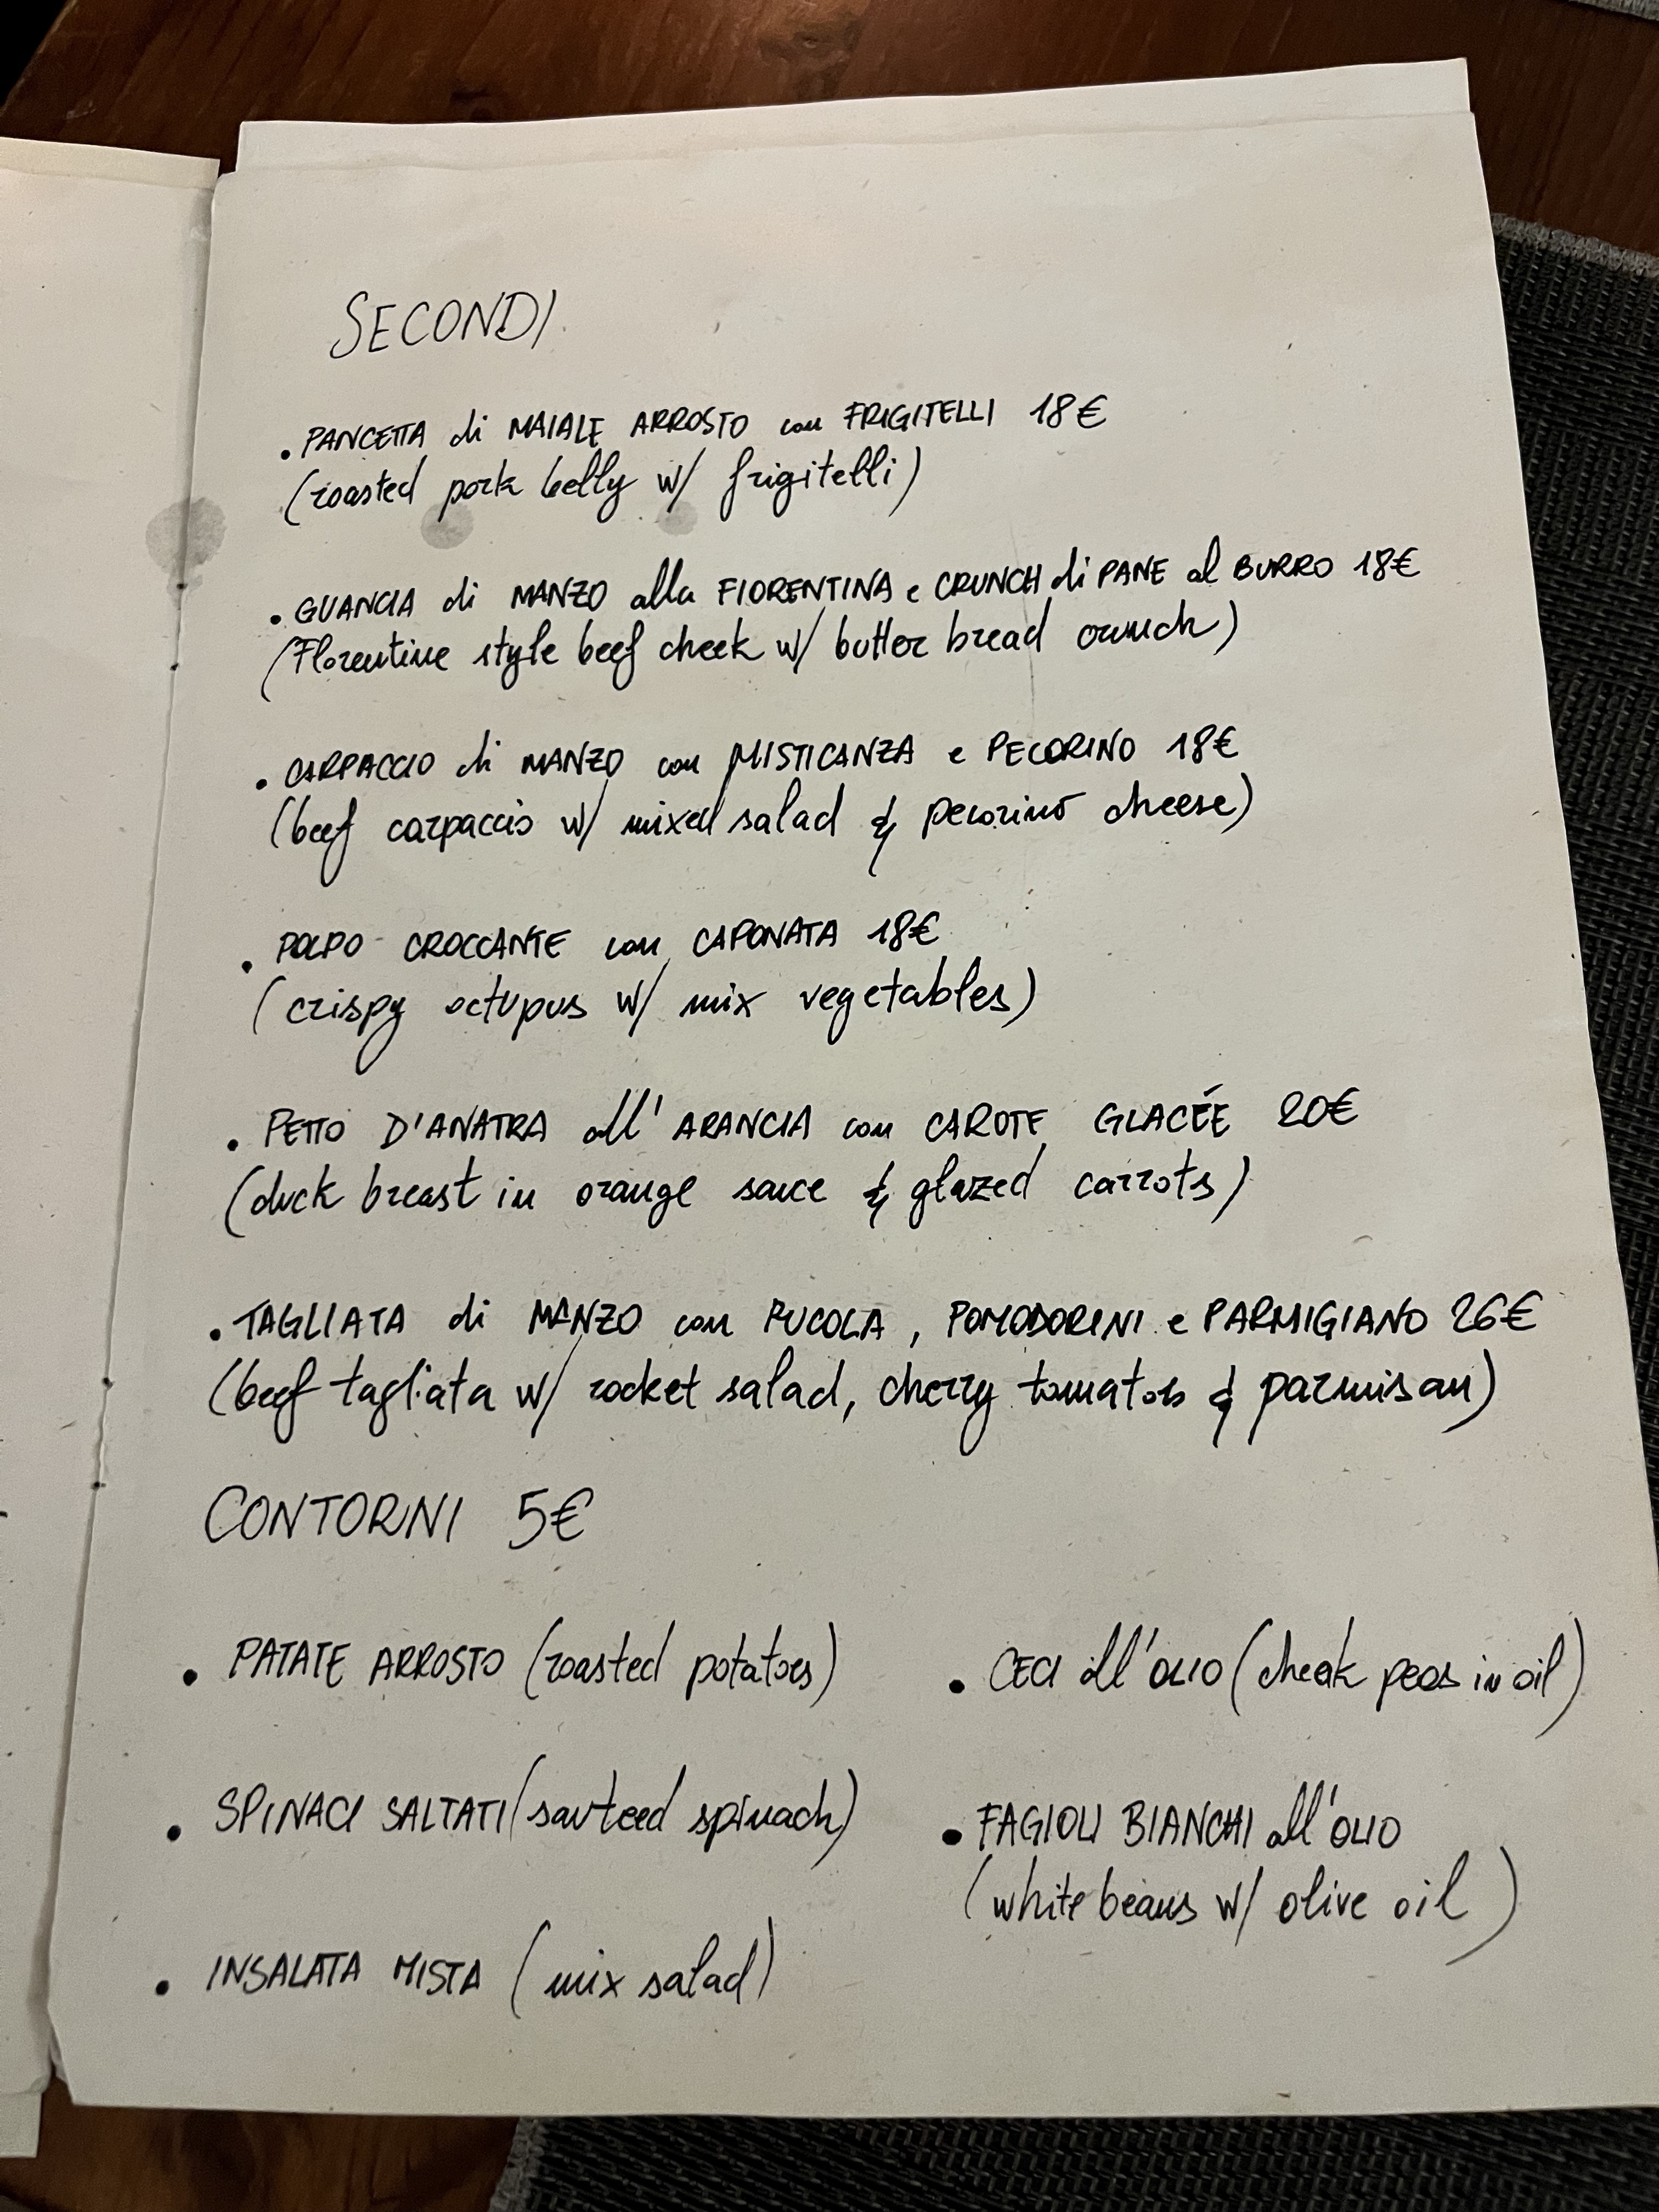 SECONDI
. PANCETTA di MAIALE ARROSTO con FRIGITELLI 18€
(roasted pork belly w/ frigitelli)
. GUANCIA di MANZO alla FIORENTINA e CRUNCH di PANE al BURRO 18€
(Florentine style beef cheek w/ butter bread crunch)
. CARPACCIO di MANZO con MISTICANZA e PECORINO 18€
(beef carpaccio w/ mixed salad & pecorino cheese)
. POLPO CROCCANTE con CAPONATA 18€
(crispy octupus w/ mix vegetables)
. PETTO D'ANATRA all'ARANCIA con CAROTE GLACÉE 20€
(duck breast in orange sauce & glazed carrots)
. TAGLIATA di MANZO con RUCOLA, POMODORINI e PARMIGIANO 26€
(beef tagliata w/ rocket salad, cherry tomatos & parmisan)
CONTORNI 5€
• PATATE ARROSTO (roasted potatoes)
• SPINACI SALTATI (sauteed spinach)
• INSALATA MISTA (mix salad)
• CECI all'OLIO (cheak peas in oil)
• FAGIOLI BIANCHI all'OLIO
(white beans w/ olive oil)